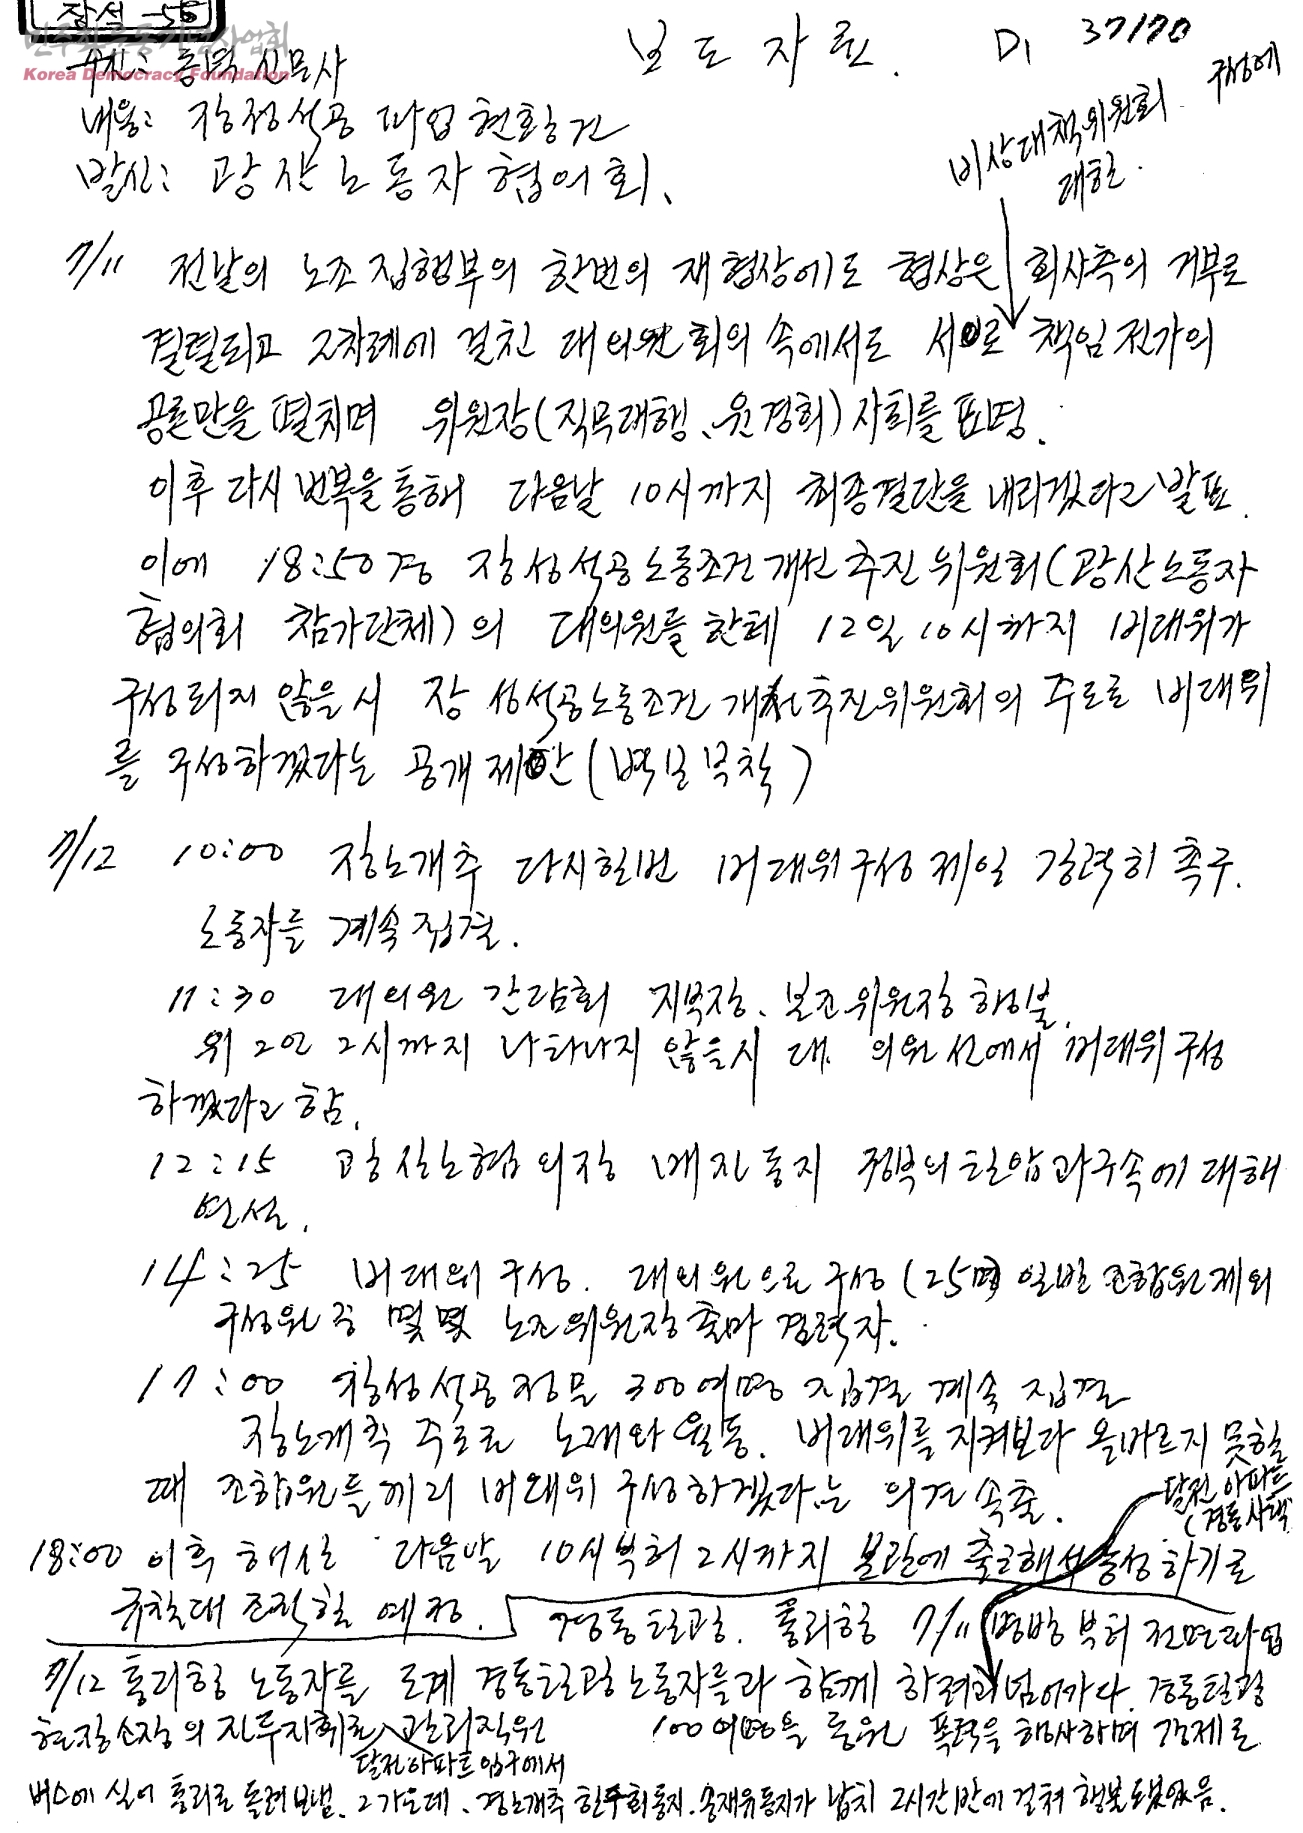 장석 - 55
민주화운동기념사업회
Korea Democracy Foundation
보 도 자 료.
D1 37/70
수신: 신문사
내용: 장성석공 파업 현황 건
발신: 광산노동자협의회.
비상대책위원회 구성에
대한.
7/11 전날의 노조 집행부의 한번의 재협상에도 협상은 회사측의 거부로
결렬되고 2차례에 걸친 대의원회의 속에서도 서로 책임전가의
공론만을 펼치며 위원장(직무대행, 윤경희) 사퇴를 표명.
이후 다시 번복을 통해 다음날 10시까지 최종결단을 내리겠다고 발표.
이에 18:50경 장성석공노동조건개선추진위원회(광산노동자
협의회 참가단체)의 대의원들한테 12일 10시까지 비대위가
구성되지 않을시 장성석공노동조건개선추진위원회의 주도로 비대위
를 구성하겠다는 공개제안(벽보부착)
7/12 10:00 장노개추 다시한번 비대위구성 제일 강력히 촉구.
노동자들 계속 집결.
11:30 대의원 간담회 지부장, 본조위원장 행불.
위 2인 2시까지 나타나지 않을시 대의원선에서 비대위구성
하겠다고 함.
12:15 광산노협의장 동지 정부의탄압과구속에 대해
연설.
14:25 비대위구성. 대의원으로 구성(25명 일반조합원제외
구성원 중 몇몇 노조위원장출마 경력자.
17:00 장성석공정문 300여명 집결 계속 집결
장노개추 주도로 노래와 율동. 비대위를 지켜보다 올바르지 못할
때 조합원들끼리 비대위 구성하겠다는 의견 속출.
18:00 이후 해산 다음날 10시부터 2시까지 본관에 출근해서 농성하기로
규찰대 조직할 예정.
달전아파트
(경동사택
경동탄광. 통리항 7/11 병방부터 전면파업
7/12 통리항 노동자들 도계 경동탄광노동자들과 함께 하려고 넘어가다. 경동탄광
현장소장의 진두지휘로 관리직원 100여명을 동원 폭력을 행사하며 강제로
달전아파트입구에서
버스에 실어 통리로 돌려보냄. 그 가운데, 경노개추 한수희동지, 송재유동지가 납치 2시간반에 걸쳐 행불되었음.